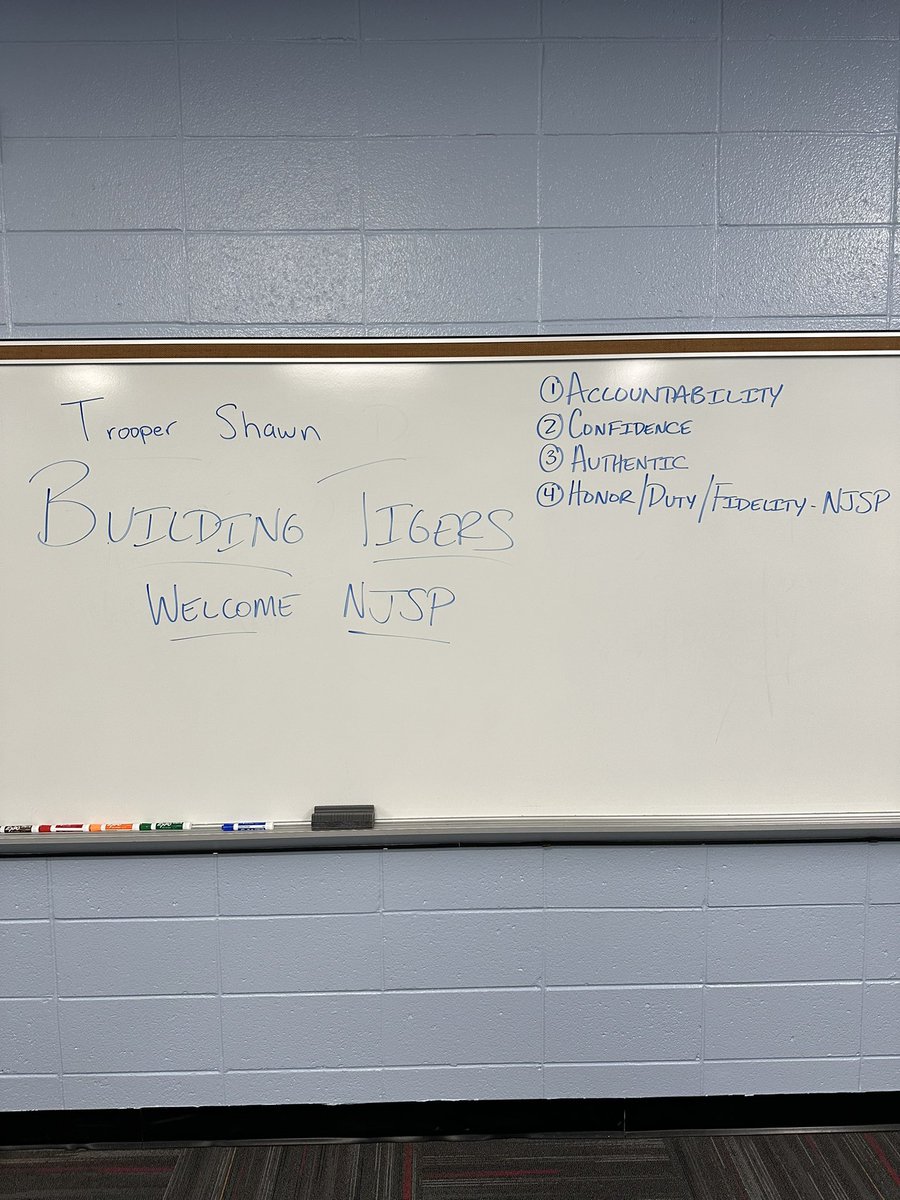 Trooper Shawn
BUILDING TIGERS
WELCOME NJSP
① ACCOUNTABILITY
② CONFIDENCE
③ AUTHENTIC
④ HONOR/DUTY/FIDELITY - NJSP